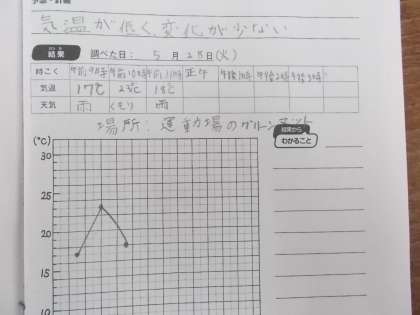 予想・計画
気温が低く変化が少ない
結果 調べた日： 5 月 28 日（火）
時こく 午前9時 午前10時 午前11時 正午 午後1時 午後2時 午後3時
気温 17℃ 23℃ 18℃
天気 雨 くもり 雨
場所：運動場のグリーンマット
結果から
わかること
(℃)
30
25
20
15
10